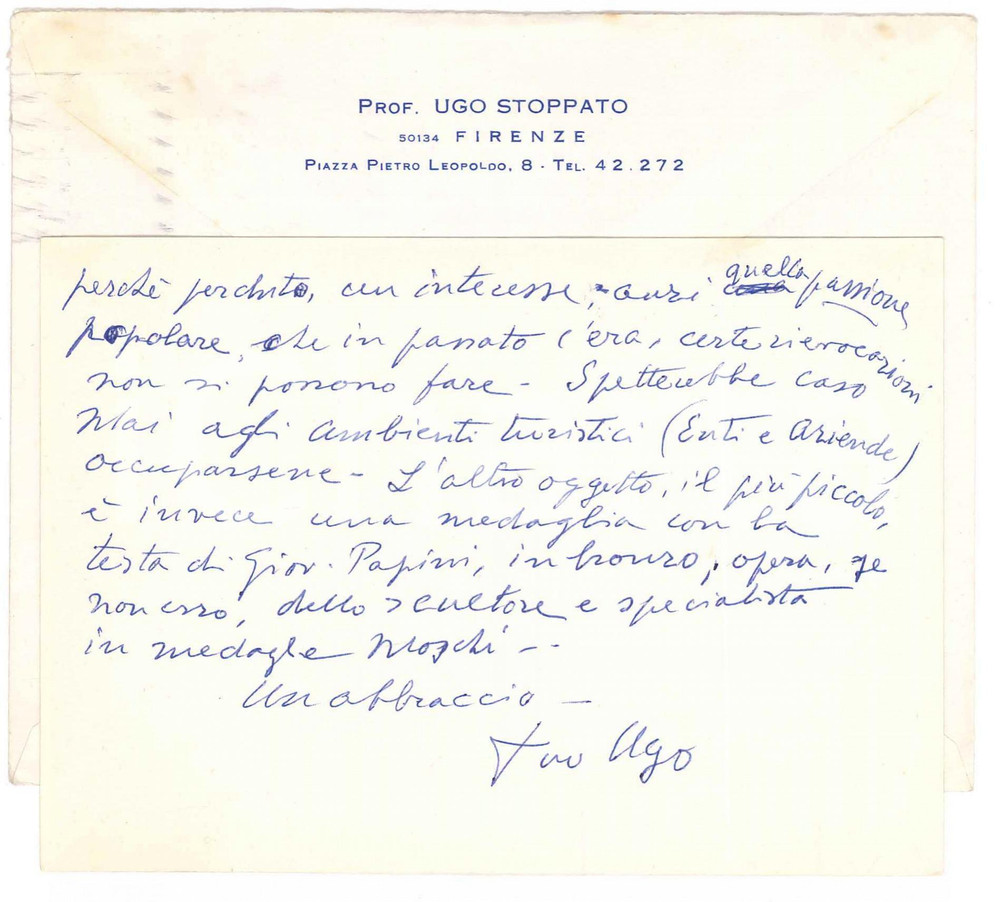 PROF. UGO STOPPATO
50134 FIRENZE
PIAZZA PIETRO LEOPOLDO, 8 - TEL. 42.272
perchè perduto, un interesse, anzi quella passione
popolare, che in passato c'era, certe rievocazioni
non si possono fare - Spetterebbe caso
Mai agli ambienti turistici (Enti e Aziende)
occuparsene - L'altro oggetto, il più piccolo,
è invece una medaglia con la
testa di Giov. Papini, in bronzo, opera, se
non erro, dello scultore e specialista
in medaglie Moschi - -
Un abbraccio -
tuo Ugo